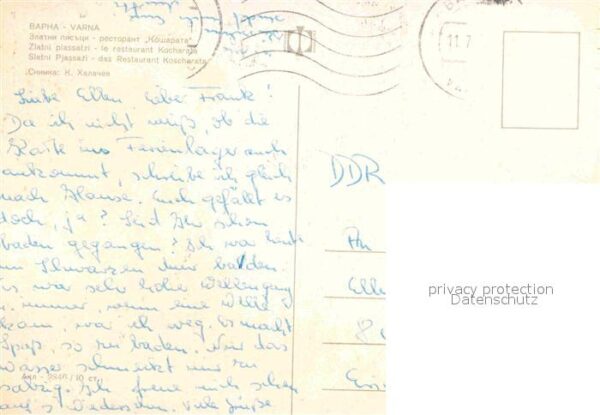 ВАРНА - VARNA
Златни пясъци - ресторант „Кошарата"
Zlatni piassatzi - le restaurant Kocharata
Slatni Pjassazi - das Restaurant Koscharata
Снимка: К. Халачев
11.7
Liebe Ellen, lieber Frank!
Da ich nicht weiß, ob die
Karte ins Ferienlager auch
ankommt, schreibe ich gleich
nach Hause. Euch gefällt es
doch, ja? Seid Ihr schon
baden gegangen? Ich war heute
im Schwarzen Meer baden.
Es war sehr hoher Wellengang
u. immer, wenn eine Welle
kam, war ich weg. Es macht
Spaß, so zu baden. Nur das
Wasser schmeckt mir zu
salzig. Ich freue mich schon
auf's Wiedersehen. Viele Grüße
DDR
An
Elle
8
privacy protection
Datenschutz